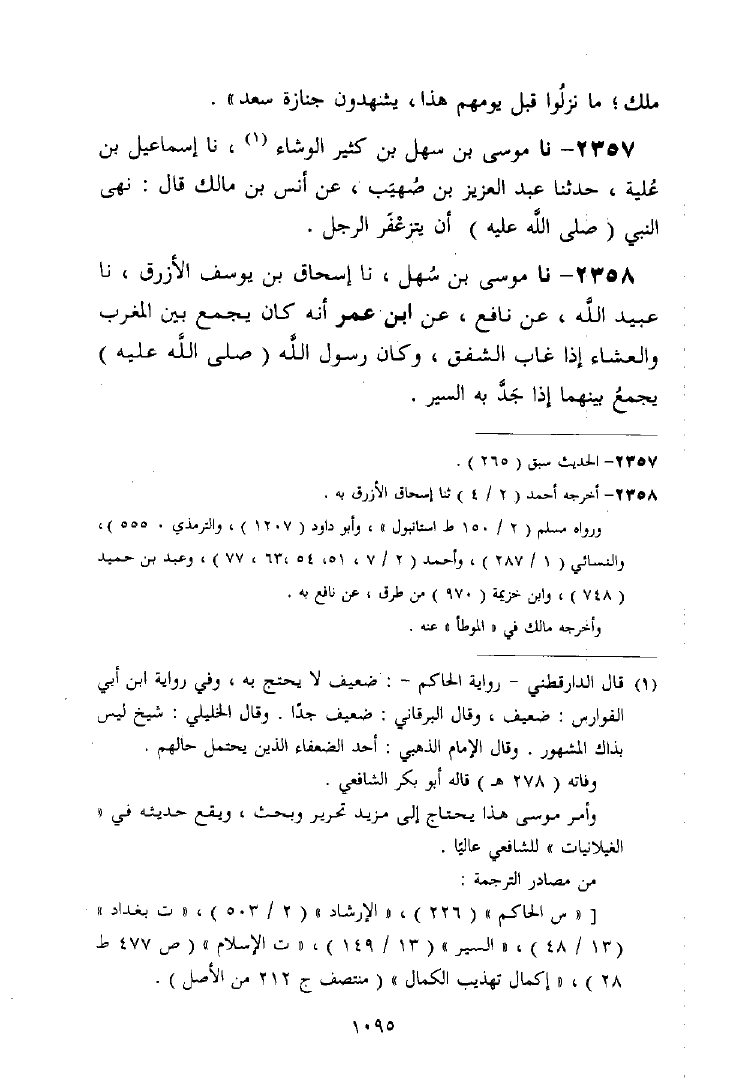 ملك ؛ ما نزلُوا قبل يومهم هذا ، يشهدون جنازة سعد » .
٢٣٥٧– نا موسى بن سهل بن كثير الوشاء (١) ، نا إسماعيل بن
عُلية ، حدثنا عبد العزيز بن صُهيَب ، عن أنس بن مالك قال : نهى
النبي ( صلى اللَّه عليه ) أن يتزعْفَر الرجل .
٢٣٥٨– نا موسى بن سُهل ، نا إسحاق بن يوسف الأزرق ، نا
عبيد اللَّه ، عن نافع ، عن ابن عمر أنه كان يجمع بين المغرب
والعشاء إذا غاب الشفق ، وكان رسول اللَّه ( صلى اللَّه عليه )
يجمعُ بينهما إذا جَدَّ به السير .
٢٣٥٧– الحديث سبق ( ٢٦٥ ) .
٢٣٥٨– أخرجه أحمد ( ٢ / ٤ ) ثنا إسحاق الأزرق به .
ورواه مسلم ( ٢ / ١٥٠ ط استانبول » ، وأبو داود ( ١٢٠٧ ) ، والترمذي ٠ ٥٥٥ ) ،
والنسائي ( ١ / ٢٨٧ ) ، وأحمد ( ٢ / ٧ ، ٥١، ٥٤ ،٦٣ ، ٧٧ ) ، وعبد بن حميد
( ٧٤٨ ) ، وابن خزيمة ( ٩٧٠ ) من طرق ، عن نافع به .
وأخرجه مالك في « الموطأ » عنه .
(١) قال الدارقطني – رواية الحاكم – : ضعيف لا يحتج به ، وفي رواية ابن أبي
الفوارس : ضعيف ، وقال البرقاني : ضعيف جدًا . وقال الخليلي : شيخ ليس
بذاك المشهور . وقال الإمام الذهبي : أحد الضعفاء الذين يحتمل حالهم .
وفاته ( ٢٧٨ هـ ) قاله أبو بكر الشافعي .
وأمر موسى هذا يحتاج إلى مزيد تحرير وبحث ، ويقع حديثه في «
الغيلانيات » للشافعي عاليًا .
من مصادر الترجمة :
[ « س الحاكم » ( ٢٢٦ ) ، « الإرشاد » ( ٢ / ٥٠٣ ) ، « ت بغداد »
( ١٣ / ٤٨ ) ، « السير » ( ١٣ / ١٤٩ ) ، « ت الإسلام » ( ص ٤٧٧ ط
٢٨ ) ، « إكمال تهذيب الكمال » ( منتصف ج ٢١٢ من الأصل ) .
١٠٩٥